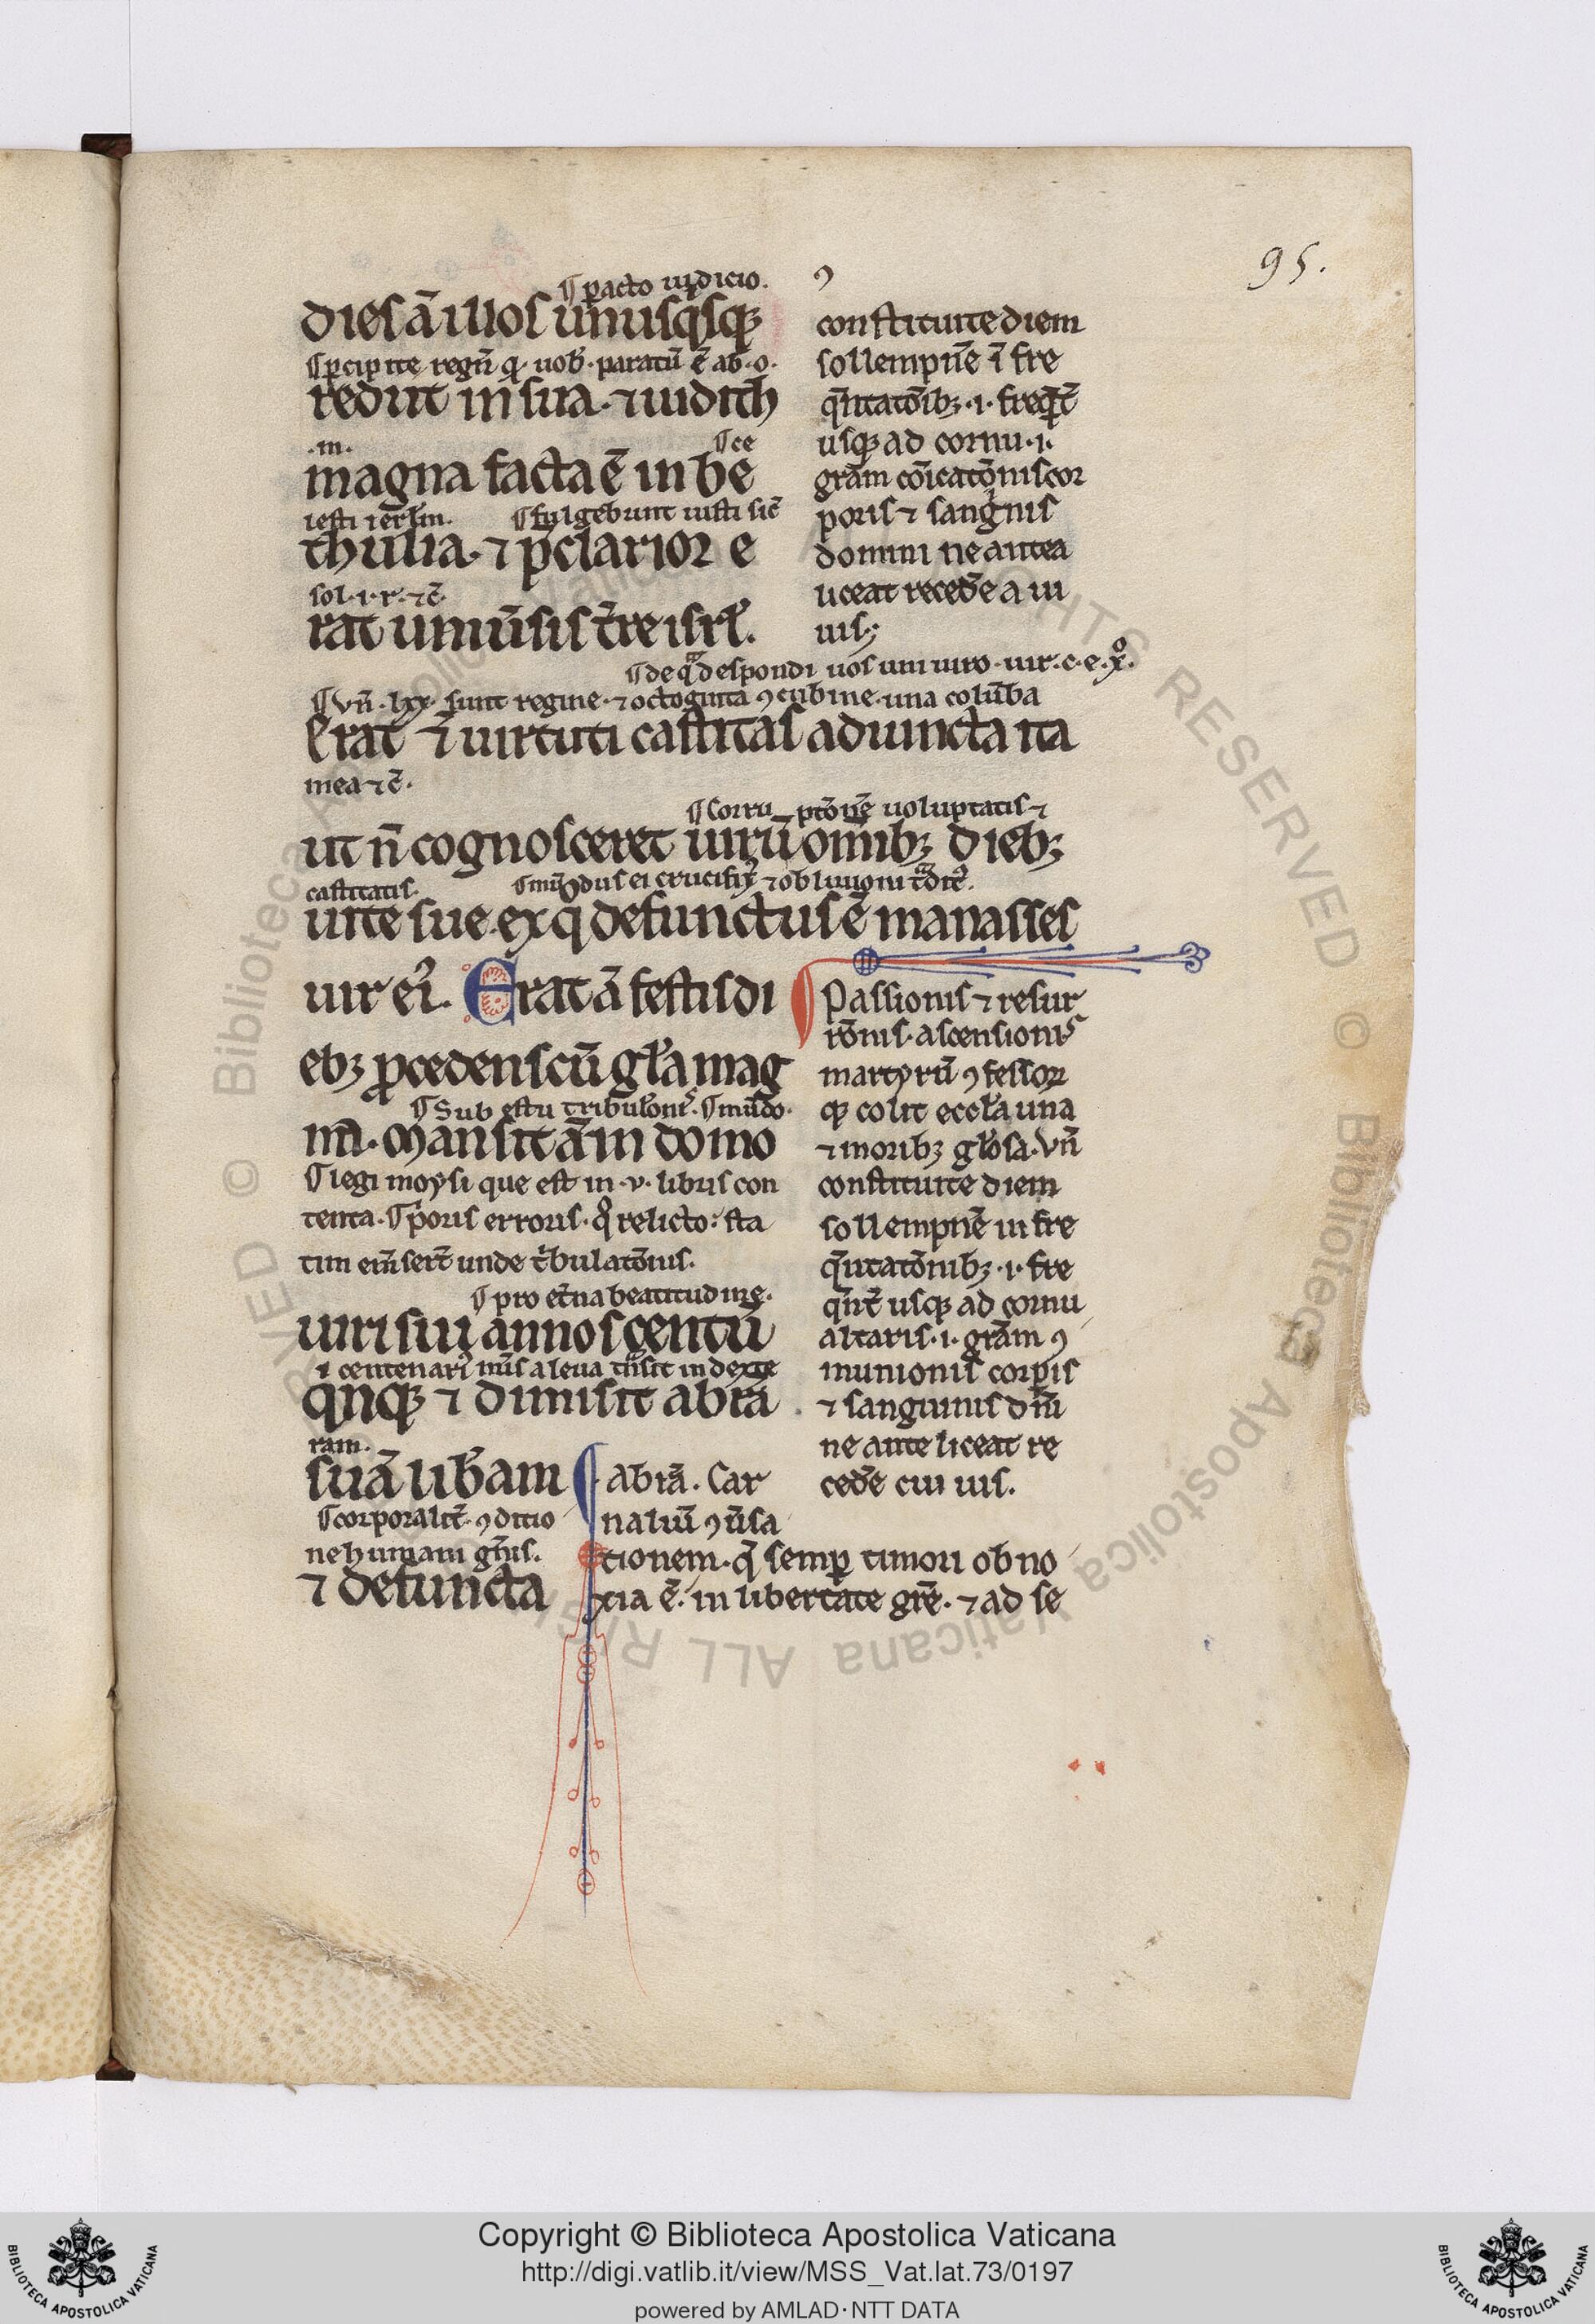 95.
¶ ꝑacto iudicio.
dies ā illos unusqͥsqꝫ
¶ ꝑcipite regn̄ qͥ uob̾ paratū ē ab o.
rediit in sua ⁊ iudith
.m. ¶ ce
magna facta ē in be
lesti ierl̄m. ¶ fulgebunt iusti sic̄
thulia ⁊ p̄clarior e
sol .i.r. ⁊ c̄.
rat uniūsis t̄re isrl̾.
ꝯ
constituite diem
sollempnē ī fre
q̄ntatōibꝫ .i. freq̄t̄
usqꝫ ad cornu .i.
gr̄am cōicatōnis cor
poris ⁊ sangͥnis
domini ne antea
liceat recede̅ a ui
uis;
¶ de qͣ despondi uos uni uiro uir. c. e. x̊.
¶ Vn̄ .lx. sunt regine ⁊ octoginta ꝯcubine una colūba
Erat ⁊̄ uirtuti castitas adiuncta ita
mea ⁊ c̄.
¶ Corruptōnē uoluptatis ⁊
ut n̄ cognosceret uirū om̄ibꝫ diebꝫ
castitatis. ¶ mūdus ei crucifix᷒ ⁊ obliuioni tͣdit᷒.
uite sue. ex qͦ defunctus ē manasses
uir ei᷒. Erat ā festis di
ebꝫ ꝓcedens cū gl̾a mag
¶ Sub estu tribul̾onis. ¶ mūdo.
na. Mansit ā in domo
¶ legi moysi que est in .v. libris con
tenta. ¶ p̄oris erroris. qͦ relicto: sta
tim em̄sert̄ unde tͥbulatōnis.
¶ pro et̄na beatitudine.
uiri sui annos centū
⁊ centenari᷒ nūs a leua tͣnsit in dexte
qͥnqꝫ ⁊ dimisit abrā
ram.
suā lib̾am
¶ corporalit̄ ꝯditio
ne humani gn̄is.
⁊ defuncta
Passionis ⁊ resur
rōnis. ascensionis
martyrū ꝯfessorꝝ
qꝫ colit eccl̾a una
⁊ moribꝫ gl̾osa. Vn̄
constituite diem
sollempnē in fre
q̄ntatōnibꝫ .i. fre
q̄nt̄ usqꝫ ad cornu
altaris .i. gr̄am ꝯ
munionis corꝑis
⁊ sanguinis dn̄i
ne ante liceat re
cede̅ cui uis.
¶ abrā. Car
naliū ꝯūsa
tionem. q̄ semꝑ timori obno
xia ē. in libertate gr̄e. ⁊ ad se
Copyright © Biblioteca Apostolica Vaticana
http://digi.vatlib.it/view/MSS_Vat.lat.73/0197
powered by AMLAD·NTT DATA